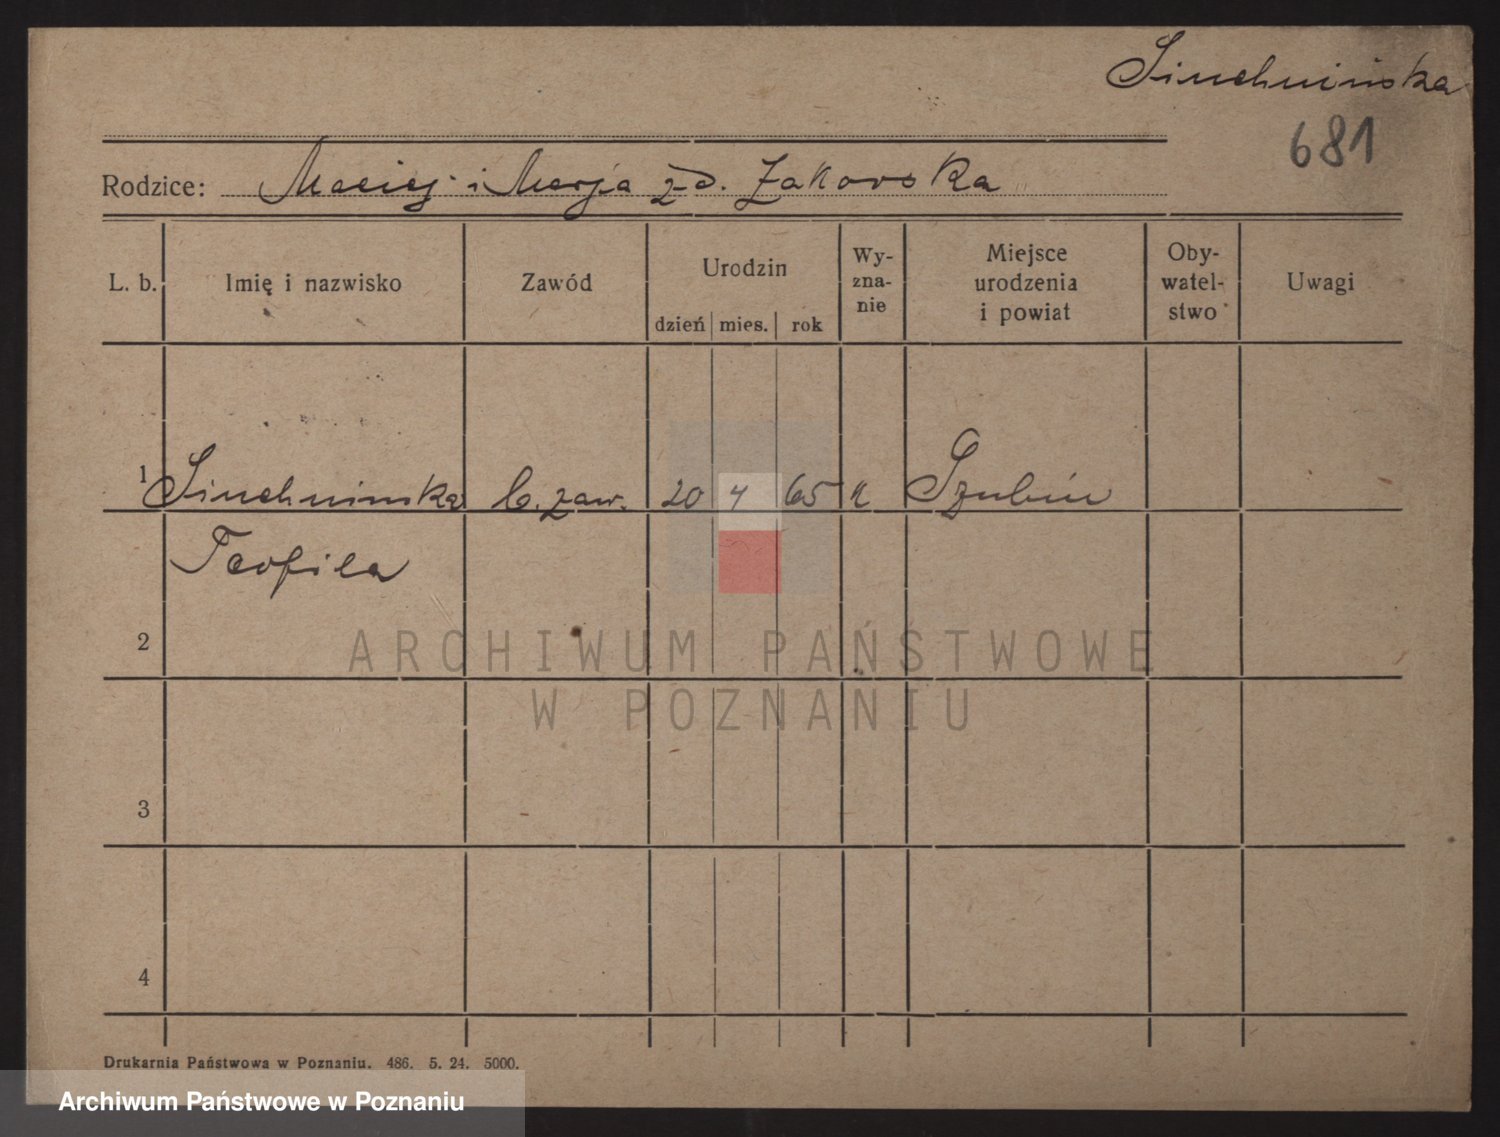 Siuchnińska
681
Rodzice: Maciej i Marja z d. Żakowska
L. b. Imię i nazwisko Zawód Urodzin dzień mies. rok Wyznanie Miejsce urodzenia i powiat Obywatelstwo Uwagi
1 Siuchninska b. zaw. 20 4 65 k Szubin
Teofila
2
3
4
Drukarnia Państwowa w Poznaniu. 486. 5. 24. 5000.
ARCHIWUM PAŃSTWOWE
W POZNANIU
Archiwum Państwowe w Poznaniu